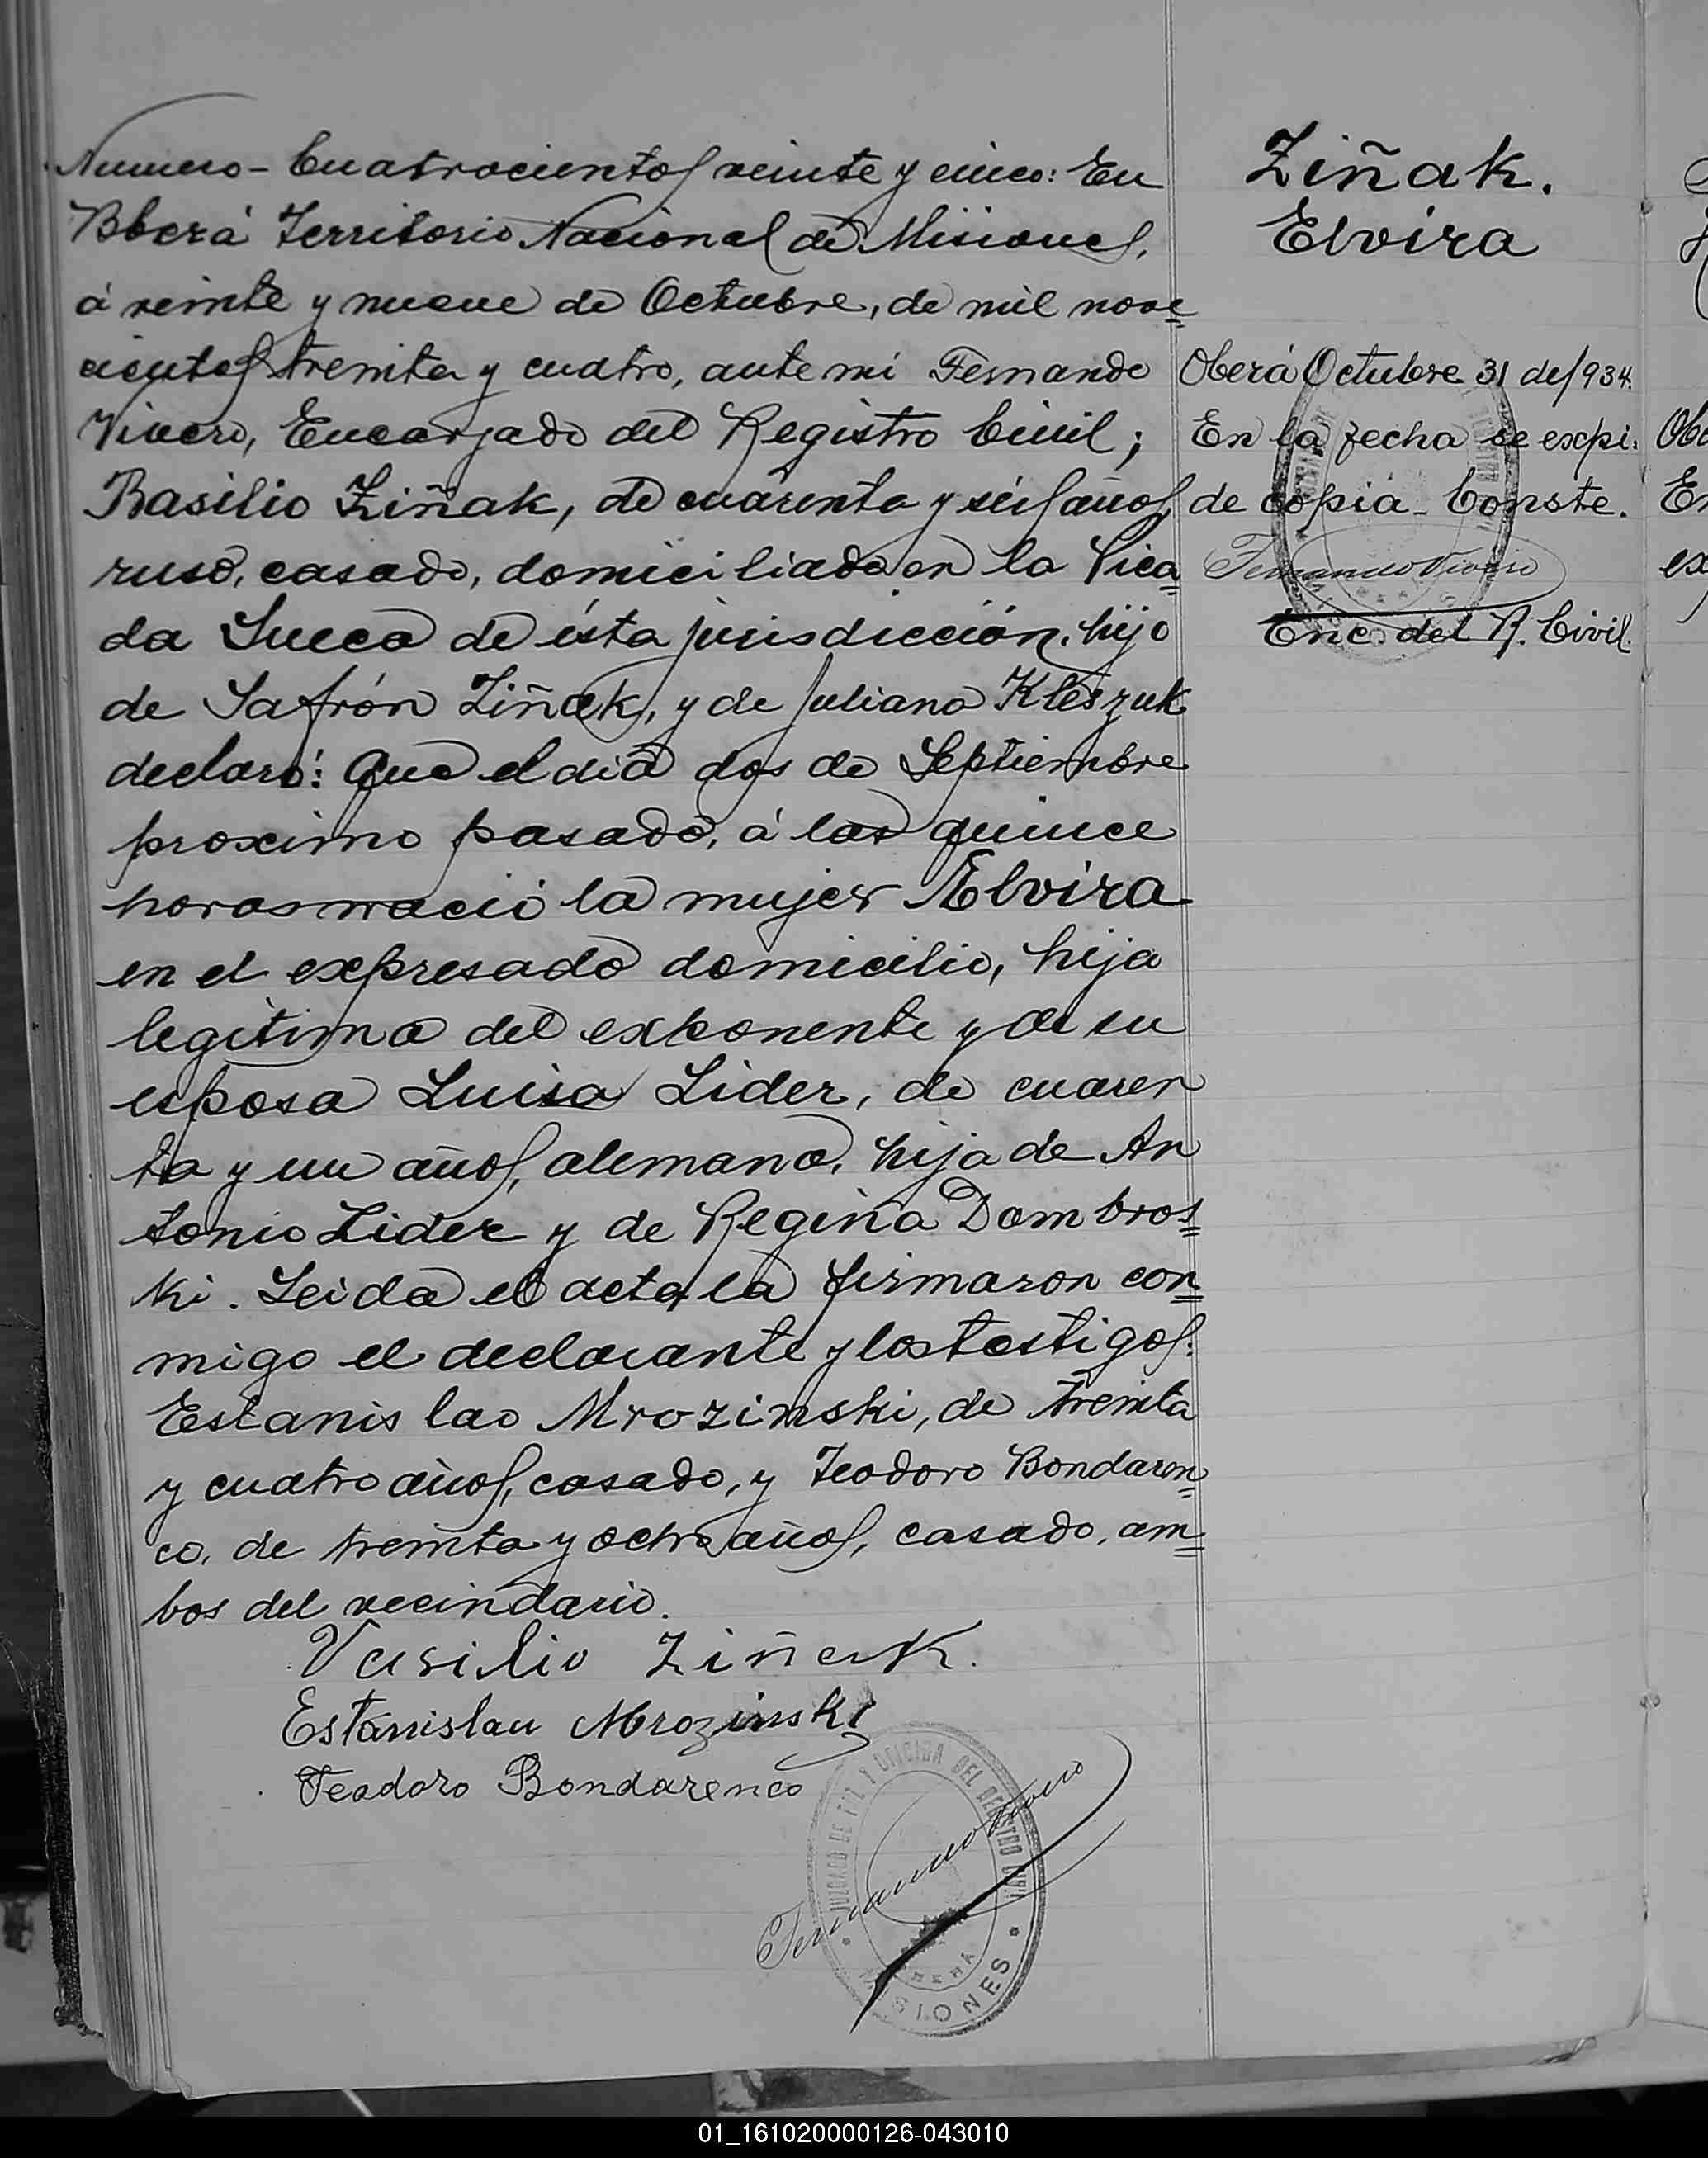 Numero - Cuatrocientos veinte y cinco: En
Oberá Territorio Nacional de Misiones,
á veinte y nueve de Octubre, de mil nove
cientos treinta y cuatro, ante mi Fernando
Vivero, Encargado del Registro Civil;
Basilio Ziñak, de cuarenta y seis años,
ruso, casado, domiciliado en la Pica
da Sueca de ésta jurisdicción, hijo
de Safrón Ziñak, y de Juliana Kleszuk
declaró: Que el dia dos de Septiembre
proximo pasado, á las quince
horas nació la mujer Elvira
en el expresado domicilio, hija
legitima del exponente y de su
esposa Luisa Lider, de cuaren
ta y un años, alemana, hija de An
tonio Lider y de Regina Dombros
ki. Leida el acta la firmaron con
migo el declarante y los testigos:
Estanislao Mrozinski, de treinta
y cuatro años, casado, y Teodoro Bondaren
co, de treinta y ocho años, casado, am
bos del vecindario.
Vasilio Ziñak.
Estanislau Mrozinski
Teodoro Bondarenco
Fernando Vivero
JUZGADO DE PAZ Y OFICINA DEL REGISTRO CIVIL
OBERÁ
MISIONES
Ziñak.
Elvira
Oberá Octubre 31 de 1934.
En la fecha se expi
de copia - Conste.
Fernando Vivero
Enc. del R. Civil.
01_161020000126-043010